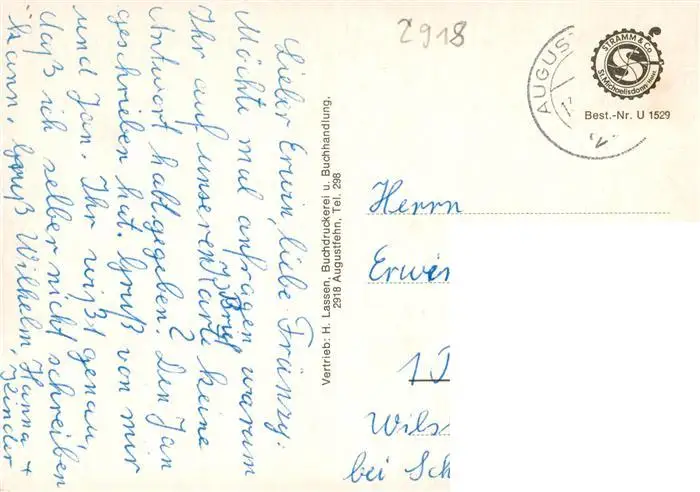 2918
Lieber Erwin, liebe Franzy.
Möchte mal anfragen warum
Ihr auf unseren Brief
Karte keine
Antwort habt gegeben? Den Jan
geschrieben hat. Gruß von mir
und Jan. Ihr wißt genau,
daß ich selber nicht schreiben
kann. Gruß Wilhelm, Hanna +
Kinder
Vertrieb: H. Lassen, Buchdruckerei u. Buchhandlung,
2918 Augustfehn, Tel. 298
AUGUS
STRAMM & Co.
St. Michaelisdonn/Holst.
Best.-Nr. U 1529
Herrn
Erwi
1
Wils
bei Sch